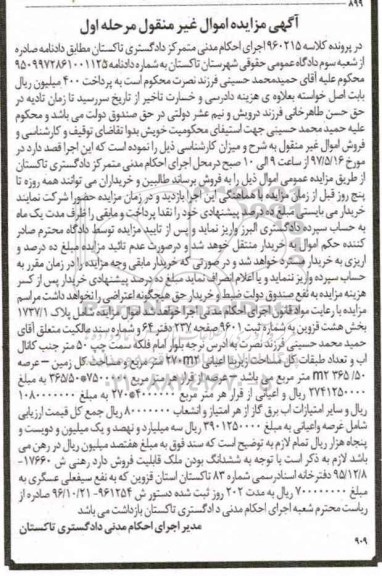 ۸۹۹
آگهی مزایده اموال غیر منقول مرحله اول
در پرونده کلاسه ۹۶۰۲۱۵ اجرای احکام مدنی متمرکز دادگستری تاکستان مطابق دادنامه صادره
از شعبه سوم دادگاه عمومی حقوقی شهرستان تاکستان به شماره دادنامه ۹۵۰۹۹۷۲۸۶۱۰۰۱۱۲۵
محکوم علیه آقای حمیدمحمد حسینی فرزند نصرت محکوم است به پرداخت ۴۰۰ میلیون ریال
بابت اصل خواسته بعلاوه ی هزینه دادرسی و خسارت تاخیر از تاریخ سررسید تا زمان تادیه در
حق حسن طاهرخانی فرزند درویش و نیم عشر دولتی در حق صندوق دولت می باشد و محکوم
علیه حمید محمد حسینی جهت استیفای محکومیت خویش بدوا تقاضای توقیف و کارشناسی و
فروش اموال غیر منقول به شرح و میزان کارشناسی ذیل را نموده است که این اجرا قصد دارد در
مورخ ۹۷/۵/۱۶ از ساعت ۹ الی ۱۰ صبح درمحل اجرای احکام مدنی متمرکز دادگستری تاکستان
از طریق مزایده عمومی اموال ذیل را به فروش برساند طالبین و خریداران می توانند همه روزه تا
پنج روز قبل از زمان مزایده با هماهنگی این اجرا بازدید و در زمان مزایده حضورا شرکت نمایند
خریدار می بایستی مبلغ ده درصد پیشنهادی خود را نقدا پرداخت و مابقی را ظرف مدت یک ماه
به حساب سپرده دادگستری البرز واریز نماید و پس از تایید مزایده توسط دادگاه محترم صادر
کننده حکم اموال به خریدار منتقل خواهد شد و درصورت عدم تائید مزایده مبلغ ده درصد و
اریزی به خریدار مسترد خواهد شد و در صورتی که خریدار مابقی وجه مزایده را در زمان مقرر به
حساب سپرده واریز ننماید و یا اعلام انصراف نماید مبلغ ده درصد پیشنهادی خریدار پس از کسر
هزینه مزایده به نفع صندوق دولت ضبط و خریدار حق هیچگونه اعتراضی را نخواهد داشت مراسم
مزایده با رعایت مواد قانون اجرای احکام مدنی اجرا خواهد شد اموال مزایده شامل پلاک ۱۷۳۷/۱
بخش هشت قزوین به شماره ثبت ۹۶۰۱ صفحه ۲۳۷ دفتر ۶۴ و شماره سند مالکیت متعلق آقای
حمید محمد حسینی فرزند نصرت به ادرس نرجه بلوار امام فلکه سمت چپ ۵۰ متر جنب کانال
اب و تعداد طبقات کل مساحت زیربنا اعیانی ۲۷۰m۲ متر مربع و مساحت کل زمین – عرصه
۳۶۵/۵۰ m۲ متر مربع می باشد – عرصه از قرار هر متر مربع
۲۷۴۱۲۵۰۰۰ ریال و اعیانی از قرار هر متر مربع به مبلغ ۱۰۸۰۰۰۰۰۰۰
ریال و سایر امتیازات اب برق گاز از هر امتیاز و انشعاب ۸۰۰۰۰۰۰۰ ریال جمع کل قیمت ارزیابی
شامل عرصه واعیانی به مبلغ ریال سه میلیارد و نهصد و یک میلیون و دویست و
پنجاه هزار ریال تمام لازم به توضیح است که سند فوق به مبلغ هفتصد میلیون ریال در رهن می
باشد لازم به ذکر است با توجه به ششدانگ بودن ملک قابلیت فروش دارد رهنی ش ۱۷۶۶۰–
۹۵/۱۲/۸ دفترخانه اسنادرسمی شماره ۸۳ تاکستان استان قزوین که به نفع سیفعلی عسگری به
مبلغ ۷۰۰۰۰۰۰۰۰ ریال به مدت ۲۰۲ روز ثبت شده دستور ش ۹۶۱۲۵۴– ۹۶/۱۰/۲۱ صادره از
ریاست محترم شعبه اجرای احکام مدنی دادگستری تاکستان بازداشت می باشد
مدیر اجرای احکام مدنی دادگستری تاکستان
۹۰۹